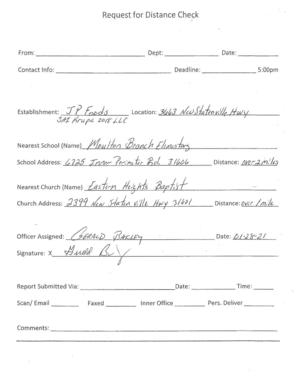 Request for Distance Check
From: Dept: Date:
Contact Info: Deadline: 5:00pm
Establishment: J.P. Foods Location: 3663 New Statenville Hwy
SAI Krupa 2015 LLC
Nearest School (Name) Moulton Branch Elmentary
School Address: 6725 Inner Perimeter Rd. 31606 Distance: over 2 miles
Nearest Church (Name) Eastern Heights Baptist
Church Address: 2399 New Staten ville Hwy 31601 Distance: over 1 mile
Officer Assigned: GERALD Date: 01-28-21
Signature: X
Report Submitted Via: Date: Time:
Scan/ Email Faxed Inner Office Pers. Deliver
Comments: